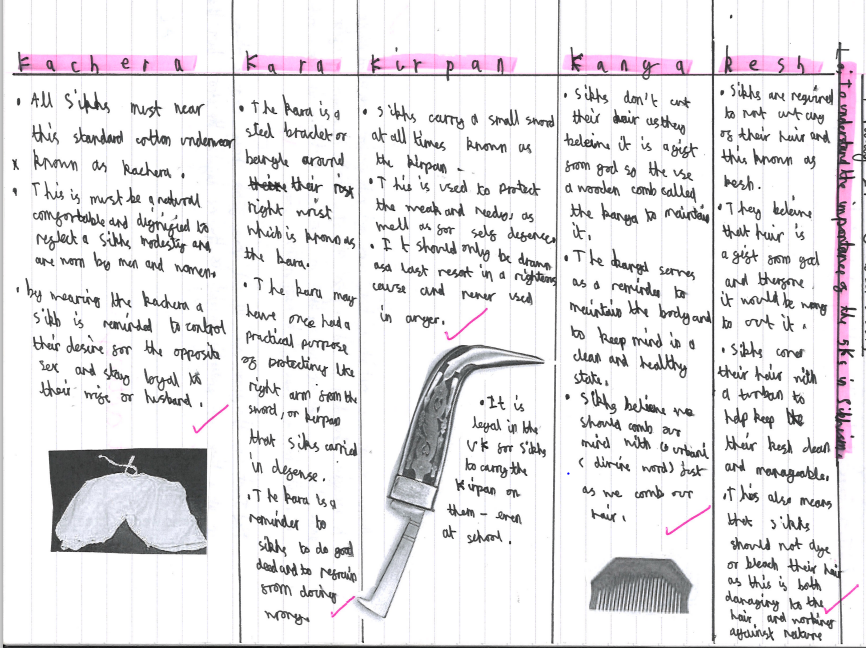 Kachera
• All Sikhs must wear
this standard cotton underwear
x known as kachera.
• This is must be a natural
comfortable and dignified to
neglect a Sikhs modesty and
are worn by men and women.
• by wearing the kachera a
Sikh is reminded to control
their desire for the opposite
sex and stay loyal to
their wife or husband.
Kara
• The kara is a
steel bracelet or
bangle around
their
right wrist
which is known as
the kara.
• The kara may
have once had a
practical purpose
of protecting the
right arm from the
sword, or kirpan
that siks carried
in defense.
• The kara is a
reminder to
sikhs to do good
deed and to refrain
from doing
wrong.
Kirpan
• Sikhs carry a small sword
at all times known as
the kirpan -
• This is used to protect
the weak and needy, as
well as for self defence.
• It should only be drawn
as a last resort in a righteous
cause and never used
in anger.
• It is
legal in the
UK for Sikhs
to carry the
kirpan on
them - even
at school.
Kanga
• Sikhs don't cut
their hair as they
believe it is a gift
from god so the use
a wooden comb called
the kanga to maintain
it.
• The kanga serves
as a reminder to
maintain the body and
to keep mind in a
clean and healthy
state.
• Sikhs believe we
should comb our
mind with Gurbani
(divine word) just
as we comb our
hair.
Kesh
• Sikhs are required
to not cut any
of their hair and
this known as
kesh.
• They believe
that hair is
a gift from god
and therefore
it would be wrong
to cut it.
• Sikhs cover
their hair with
a turban to
help keep
their kesh clean
and manageable.
• This also means
that sikhs
should not dye
or bleach their hair
as this is both
damaging to the
hair, and working
against nature
Lo: To understand the importance of the 5Ks in Sikhism